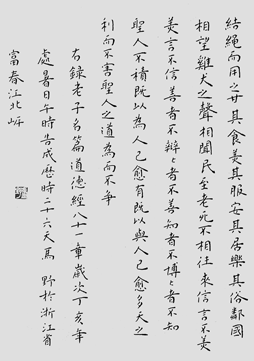 結繩而用之甘其食美其服安其居樂其俗鄰國
相望雞犬之聲相聞民至老死不相往來信言不美
美言不信善者不辯辯者不善知者不博博者不知
聖人不積既以為人己愈有既以與人己愈多天之
利而不害聖人之道為而不爭
右錄老子名篇道德經八十一章歲次丁亥年
處暑日午時告成歷時二十六天馬 野於浙江省
富春江北岸